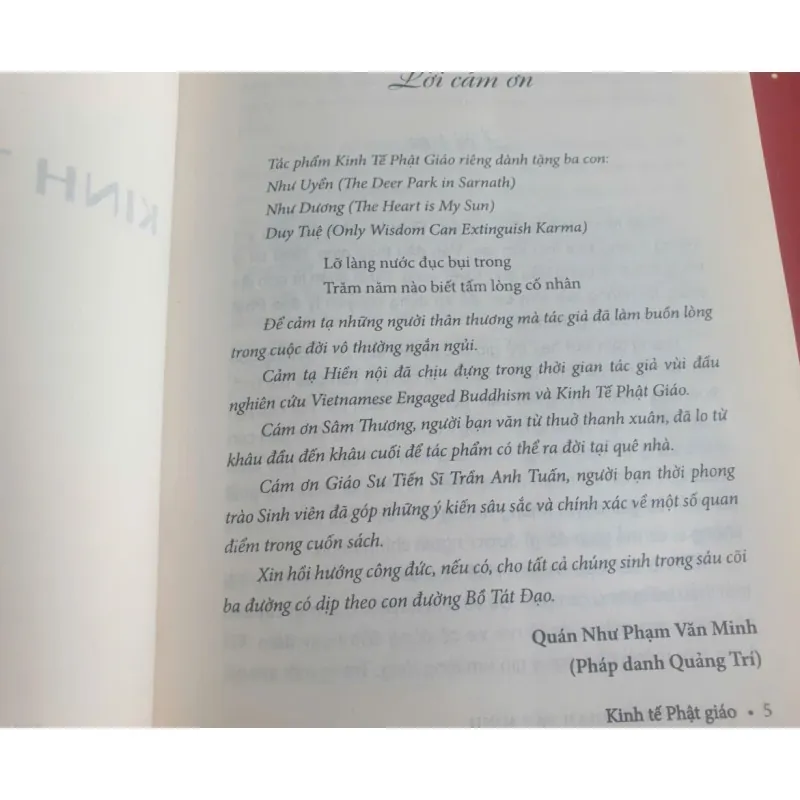 Lời cảm ơn
Tác phẩm Kinh Tế Phật Giáo riêng dành tặng ba con:
Như Uyển (The Deer Park in Sarnath)
Như Dương (The Heart is My Sun)
Duy Tuệ (Only Wisdom Can Extinguish Karma)
Lỡ làng nước đục bụi trong
Trăm năm nào biết tấm lòng cố nhân
Để cảm tạ những người thân thương mà tác giả đã làm buồn lòng
trong cuộc đời vô thường ngắn ngủi.
Cảm tạ Hiền nội đã chịu đựng trong thời gian tác giả vùi đầu
nghiên cứu Vietnamese Engaged Buddhism và Kinh Tế Phật Giáo.
Cám ơn Sâm Thương, người bạn văn từ thuở thanh xuân, đã lo từ
khâu đầu đến khâu cuối để tác phẩm có thể ra đời tại quê nhà.
Cám ơn Giáo Sư Tiến Sĩ Trần Anh Tuấn, người bạn thời phong
trào Sinh viên đã góp những ý kiến sâu sắc và chính xác về một số quan
điểm trong cuốn sách.
Xin hồi hướng công đức, nếu có, cho tất cả chúng sinh trong sáu cõi
ba đường có dịp theo con đường Bồ Tát Đạo.
Quán Như Phạm Văn Minh
(Pháp danh Quảng Trí)
Kinh tế Phật giáo • 5